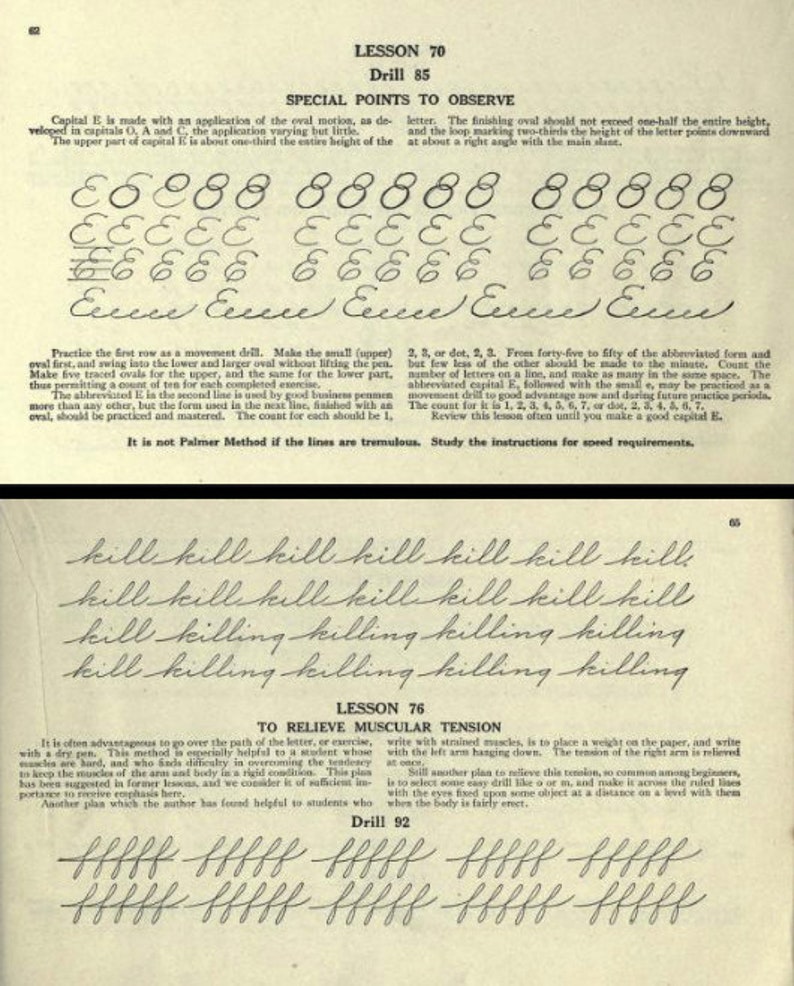 62
LESSON 70
Drill 85
SPECIAL POINTS TO OBSERVE
Capital E is made with an application of the oval motion, as de-
veloped in capitals O, A and C, the application varying but little.
The upper part of capital E is about one-third the entire height of the
letter. The finishing oval should not exceed one-half the entire height,
and the loop marking two-thirds the height of the letter points downward
at about a right angle with the main slant.
E E E E E E E E E E E E E E E
E E E E E E E E E E E E E E E
Practice the first row as a movement drill. Make the small (upper)
oval first, and swing into the lower and larger oval without lifting the pen.
Make five traced ovals for the upper, and the same for the lower part,
thus permitting a count of ten for each completed exercise.
The abbreviated E in the second line is used by good business penmen
more than any other, but the form used in the next line, finished with an
oval, should be practiced and mastered. The count for each should be 1,
2, 3, or dot, 2, 3. From forty-five to fifty of the abbreviated form and
but few less of the other should be made to the minute. Count the
number of letters on a line, and make as many in the same space. The
abbreviated capital E, followed with the small e, may be practiced as a
movement drill to good advantage now and during future practice periods.
The count for it is 1, 2, 3, 4, 5, 6, 7, or dot, 2, 3, 4, 5, 6, 7.
Review this lesson often until you make a good capital E.
It is not Palmer Method if the lines are tremulous. Study the instructions for speed requirements.
65
kill kill kill kill kill kill kill.
kill kill kill kill kill kill kill
kill killing killing killing killing
kill killing killing killing killing
LESSON 76
TO RELIEVE MUSCULAR TENSION
It is often advantageous to go over the path of the letter, or exercise,
with a dry pen. This method is especially helpful to a student whose
muscles are hard, and who finds difficulty in overcoming the tendency
to keep the muscles of the arm and body in a rigid condition. This plan
has been suggested in former lessons, and we consider it of sufficient im-
portance to receive emphasis here.
Another plan which the author has found helpful to students who
write with strained muscles, is to place a weight on the paper, and write
with the left arm hanging down. The tension of the right arm is relieved
at once.
Still another plan to relieve this tension, so common among beginners,
is to select some easy drill like o or m, and make it across the ruled lines
with the eyes fixed upon some object at a distance on a level with them
when the body is fairly erect.
Drill 92
fffff fffff fffff fffff fffff
fffff fffff fffff fffff fffff